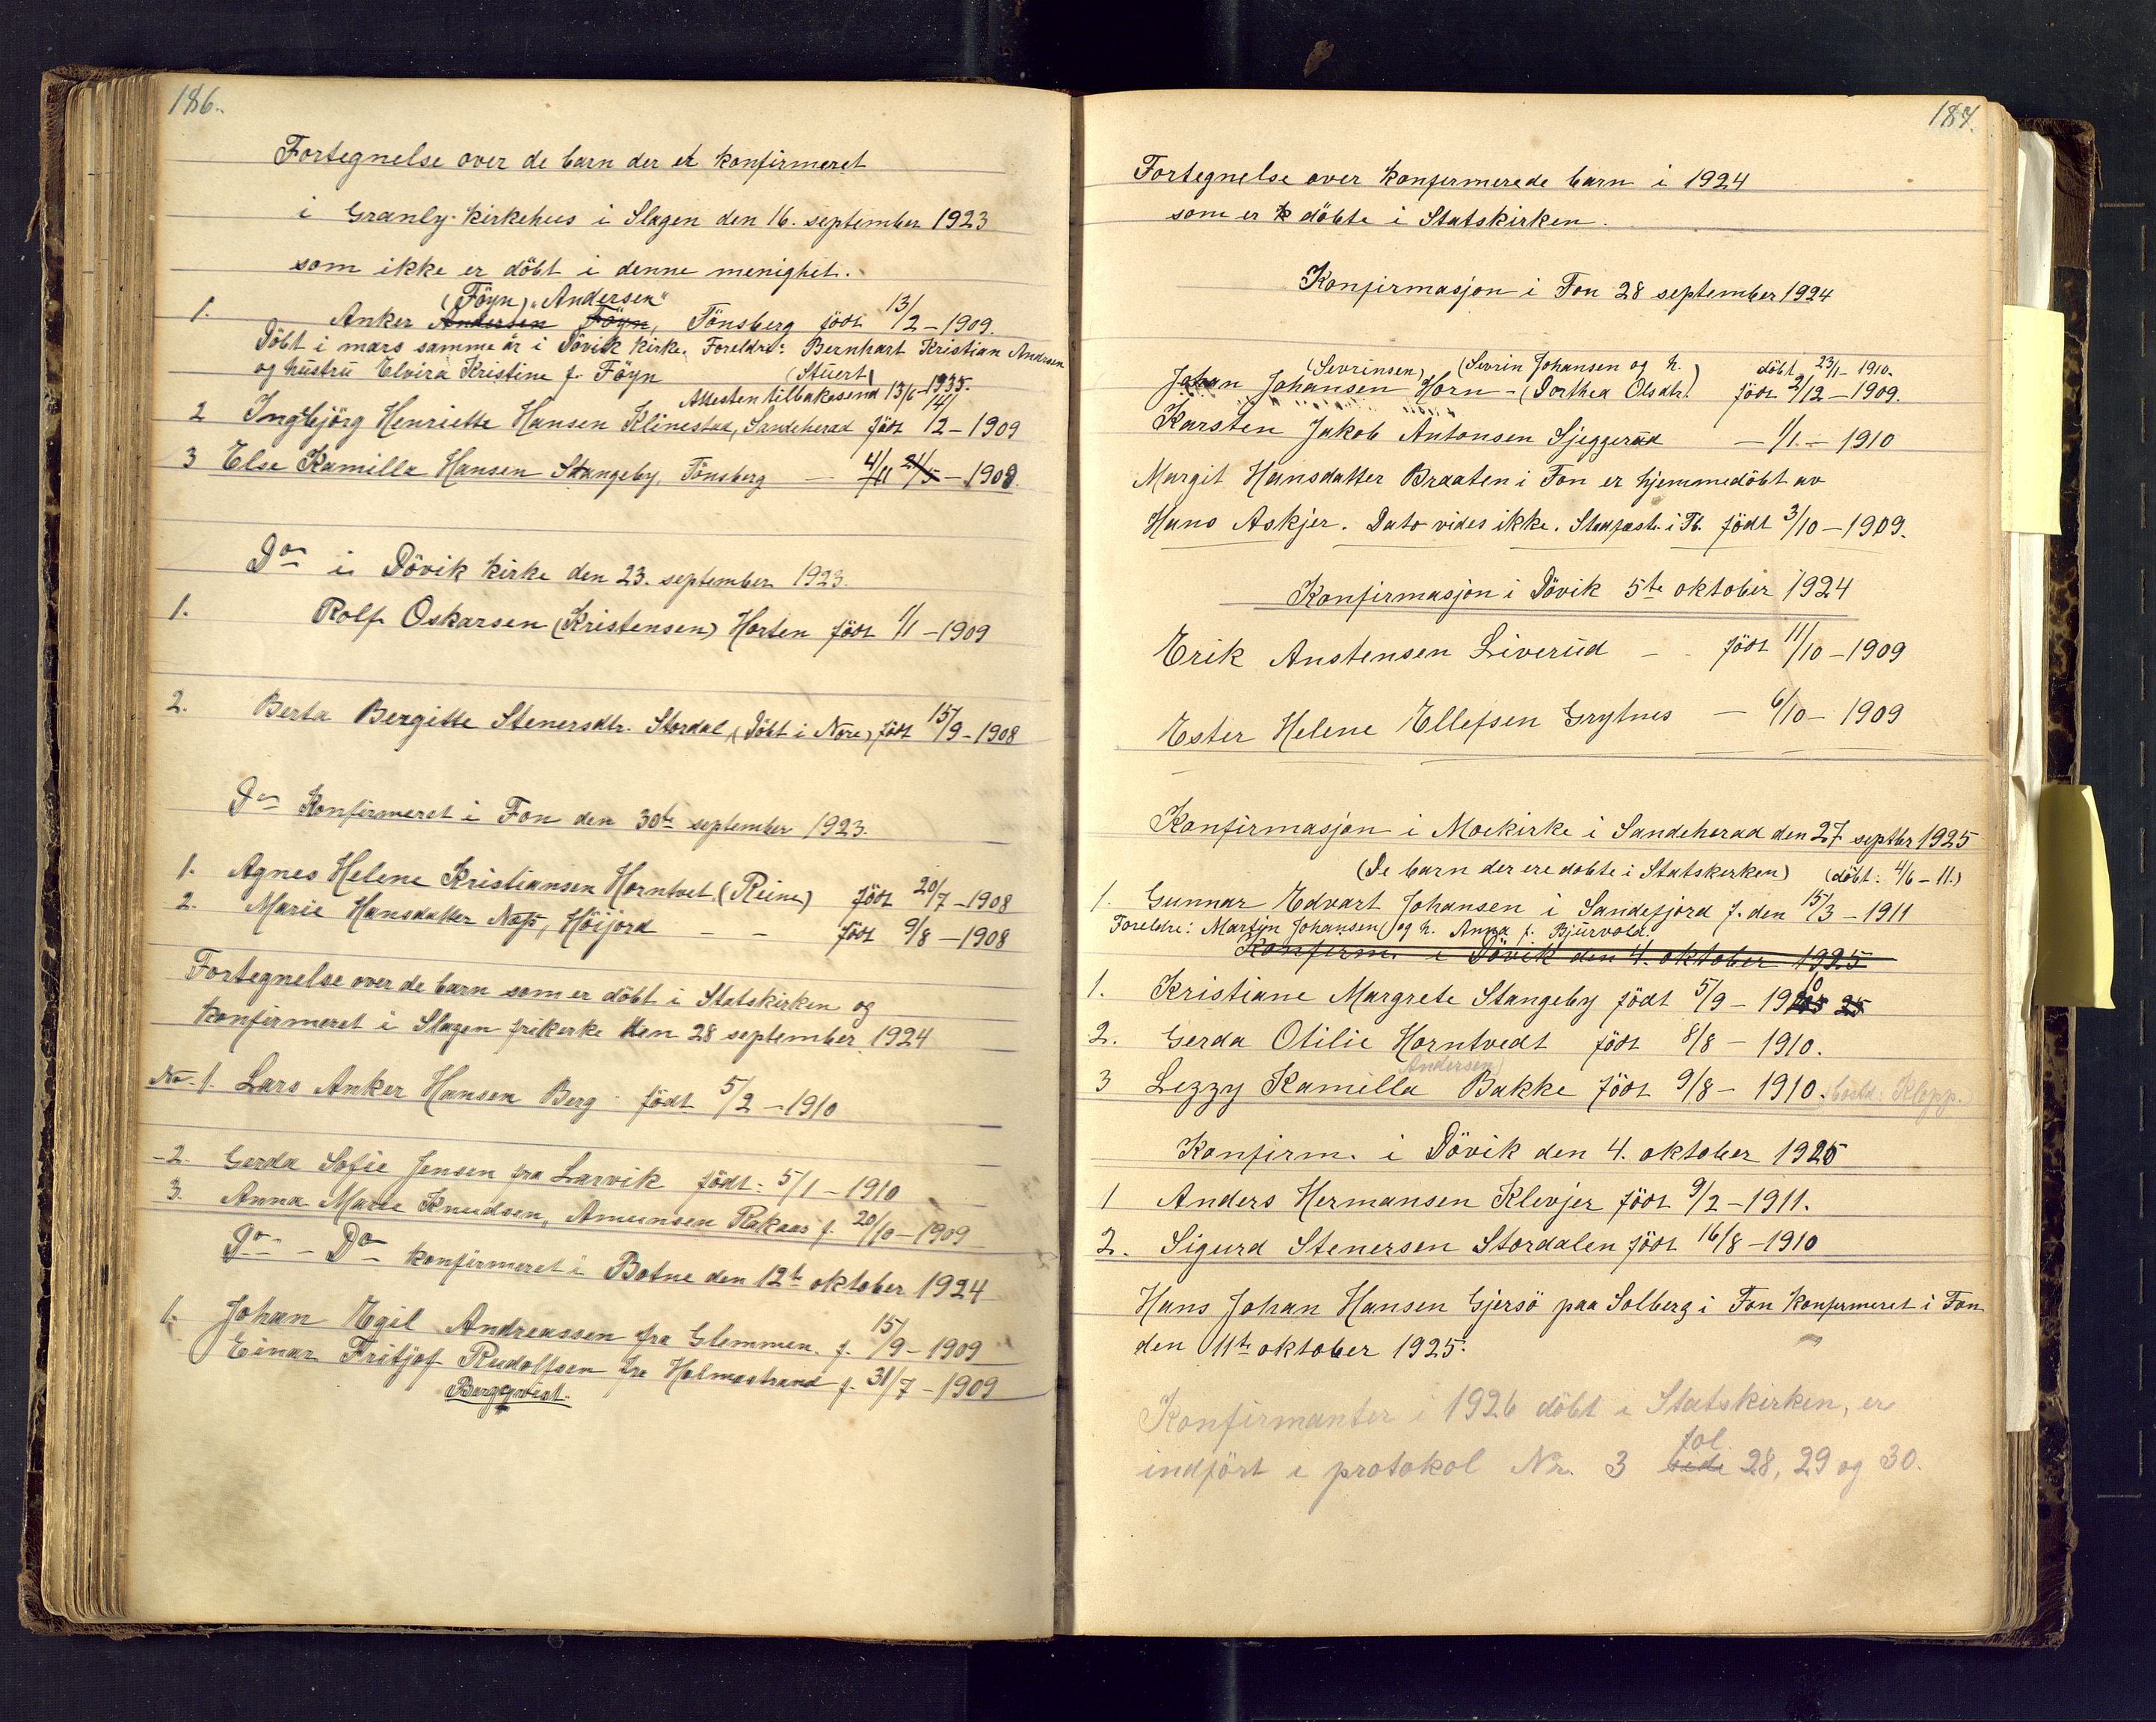 186.
Fortegnelse over de barn der er konfirmeret
i Granly-kirkehus i Slagen den 16. september 1923
som ikke er döbt i denne menighet.
(Föyn) "Andersen"
1. Anker Andersen Föyn, Tönsberg födt 13/2 - 1909.
Döbt i mars samme år i Dövik kirke. Foreldre: Bernhart Kristian Andersen
og hustru Elvira Kristine f. Föyn (Stuert)
Attesten tilbakesend 13/6 - 1935.
2 Ingebjörg Henriette Hansen Klinestad, Sandeherad födt 14/2 - 1909
3 Else Kamilla Hansen Stangeby, Tönsberg — 4/11 21/5 - 1908.
Do i Dövik kirke den 23. september 1923.
1. Rolf Oskarsen (Kristensen) Horten födt 1/1 - 1909
2. Berta Bergitte Stenersdtr. Stordal, (Döbt i Nore) födt 15/9 - 1908
Do Konfirmeret i Fon den 30te september 1923.
1. Agnes Helene Kristiansen Horntvet (Reine) födt 20/7 - 1908
2. Marie Hansdatter Næss, Höijord — — födt 9/8 - 1908
Fortegnelse over de barn som er döbt i Statskirken og
konfirmeret i Slagen frikerke den 28 september 1924
No. 1. Lars Anker Hansen Berg födt 5/2 - 1910
- 2. Gerda Sofie Jensen fra Larvik födt: 5/1 - 1910
3. Anna Marie Knudsen, Amunsen Rakaas f. 20/10 - 1909
Do — Do konfirmeret i Botne den 12te oktober 1924
1. Johan Egil Andreassen fra Glemmen. f. 15/9 - 1909
Einar Fritjof Rudolfsen fra Holmestrand f. 31/7 - 1909
Bergqvist.
187.
Fortegnelse over konfirmerede barn i 1924
som er k döbte i Statskirken.
Konfirmasjon i Fon 28 september 1924
(Sevrinsen) (Sevrin Johansen og h. döbt 23/1 - 1910.
Johan Johansen Horn - (Dorthea Olsdtr.) födt 2/12 - 1909.
Karsten Jakob Antonsen Sjeggerud — 1/1. - 1910
Margit Hansdatter Braaten i Fon er hjemmedöbt av
Hans Askjer. Dato vides ikke. Stadfæst. i Fk. födt 3/10 - 1909.
Konfirmasjon i Dövik 5te oktober 1924
Erik Anstensen Liverud — - födt 11/10 - 1909
Ester Helene Ellefsen Grytnes — 6/10 - 1909
Konfirmasjon i Moekirke i Sandeherad den 27 septber 1925
(De barn der ere dobte i Statskerken) (döbt: 4/6 - 11.)
1. Gunnar Edvart Johansen i Sandefjord f. den 15/3 - 1911
Foreldre: Martin Johansen og h. Anna f. Bjurvold.
Konfirm. i Dövik den 4. oktober 1925
1. Kristiane Margrete Stangeby födt 5/9 - 1910 25
2. Gerda Otilie Horntvedt födt 8/8 - 1910.
Andersen)
3 Lezzy Kamilla Bakke födt 9/8 - 1910. bosta: Klopp.
Konfirm. i Dövik den 4. oktober 1925
1 Anders Hermansen Klevjer födt 9/2 - 1911.
2. Sigurd Stenersen Stordalen födt 16/8 - 1910
Hans Johan Hansen Gjersö paa Solberg i Fon Konfirmeret i Fon
den 11te oktober 1925.
Konfirmanter i 1926 döbt i Statskirken, er
fol.
indfört i protokol Nr. 3 side 28, 29 og 30.